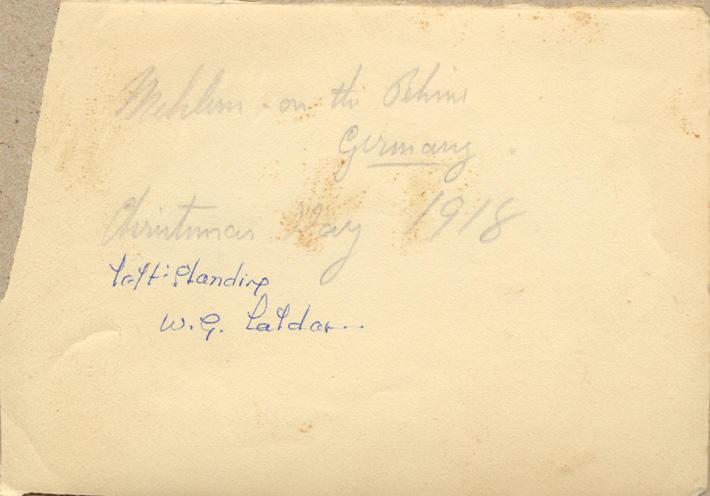 Mehlem - on the Rhine
Germany.
Christmas Day 1918
Left: Standing
W. G.